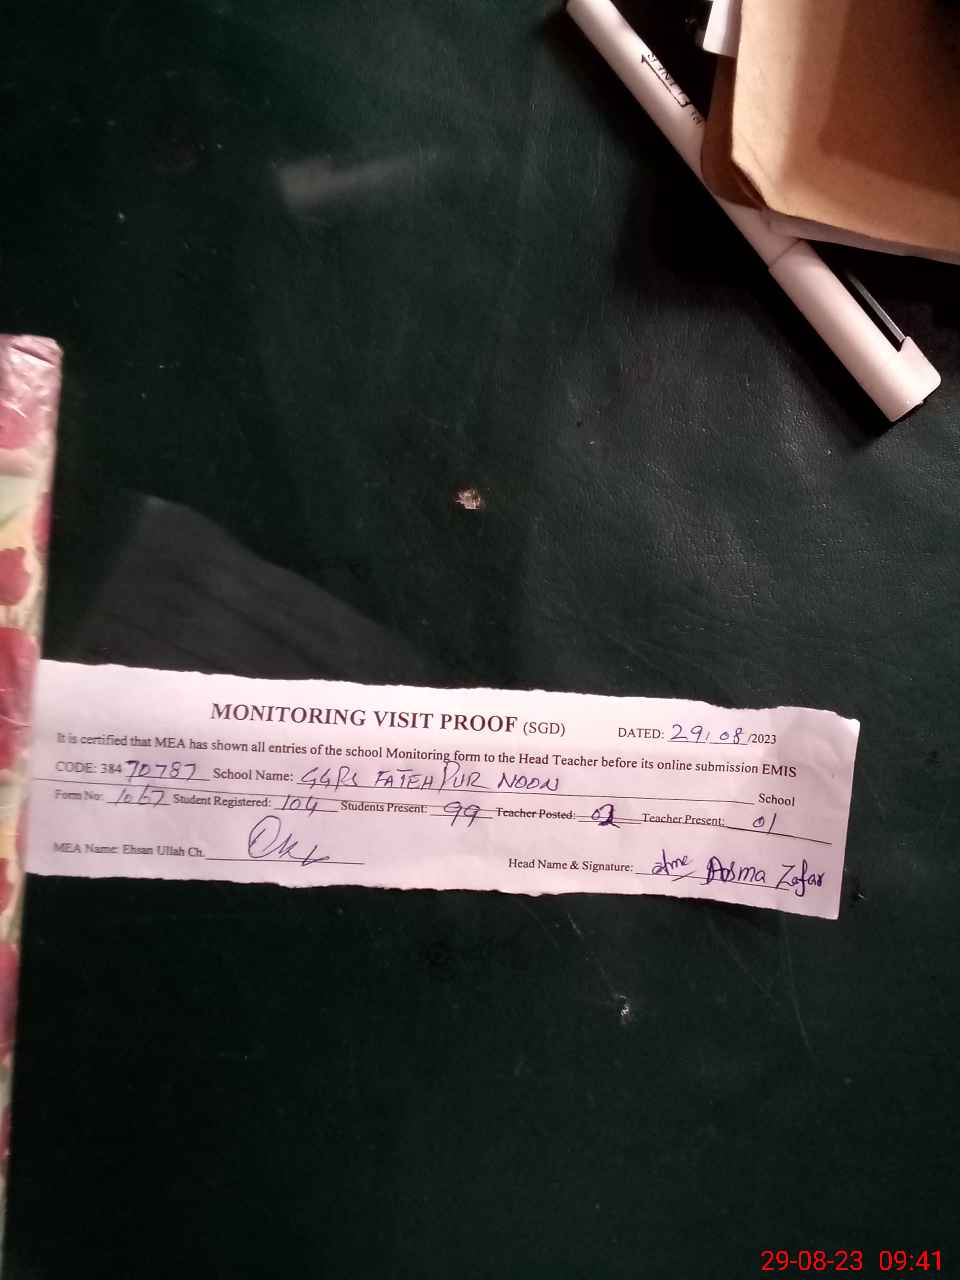 MONITORING VISIT PROOF (SGD) DATED: 29.08/2023
It is certified that MEA has shown all entries of the school Monitoring form to the Head Teacher before its online submission EMIS
CODE: 384 70787 School Name: GGPS FATEH PUR NOON School
Form No: 1067 Student Registered: 104 Students Present: 99 Teacher Posted: Teacher Present: 01
MEA Name: Ehsan Ullah Ch. Head Name & Signature: Asma Zafar
29-08-23 09:41